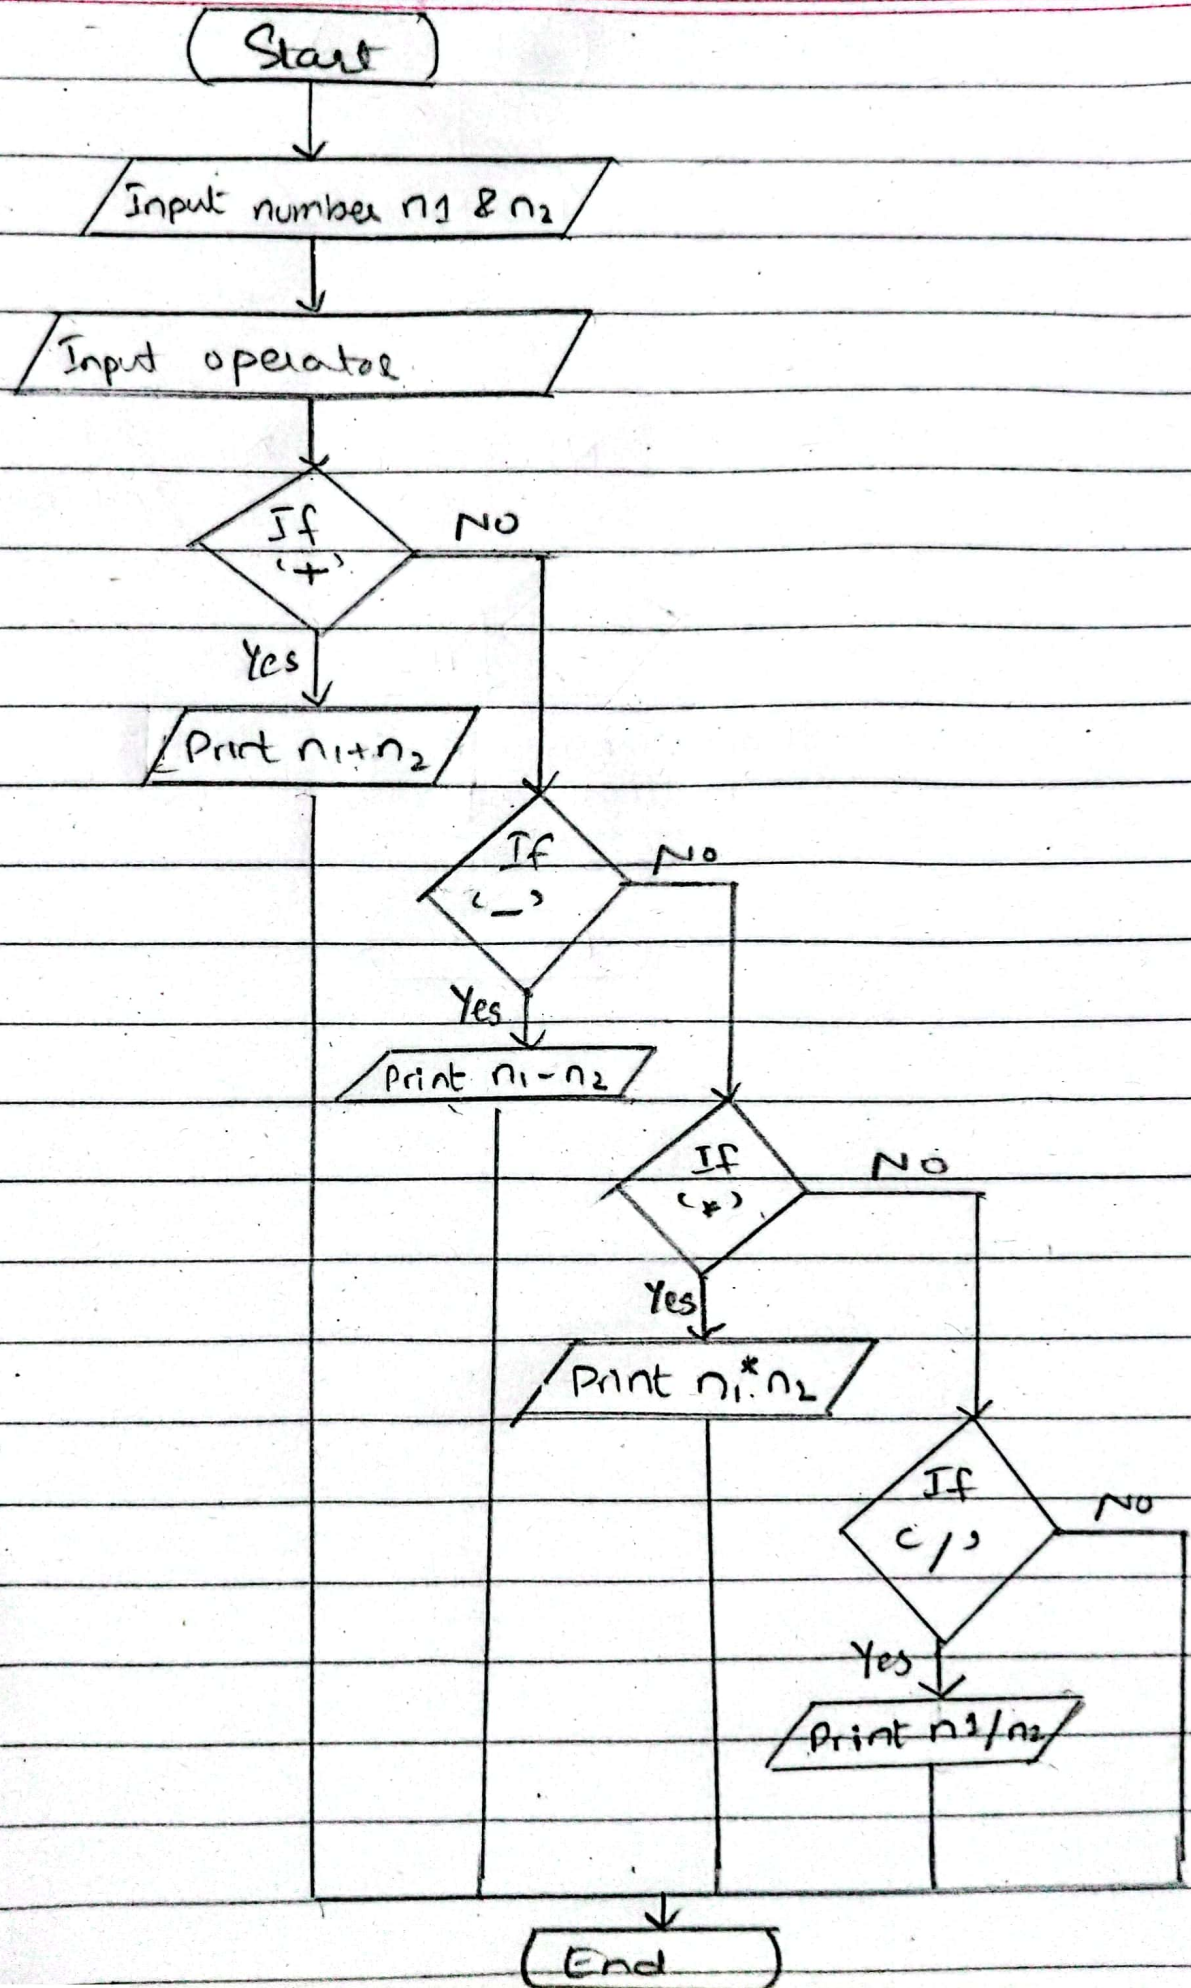 Start
Input number n1 & n2
Input operator
If
'+'
NO
Yes
Print n1+n2
If
'-'
NO
Yes
Print n1-n2
If
'*'
NO
Yes
Print n1*n2
If
'/'
NO
Yes
Print n1/n2
End